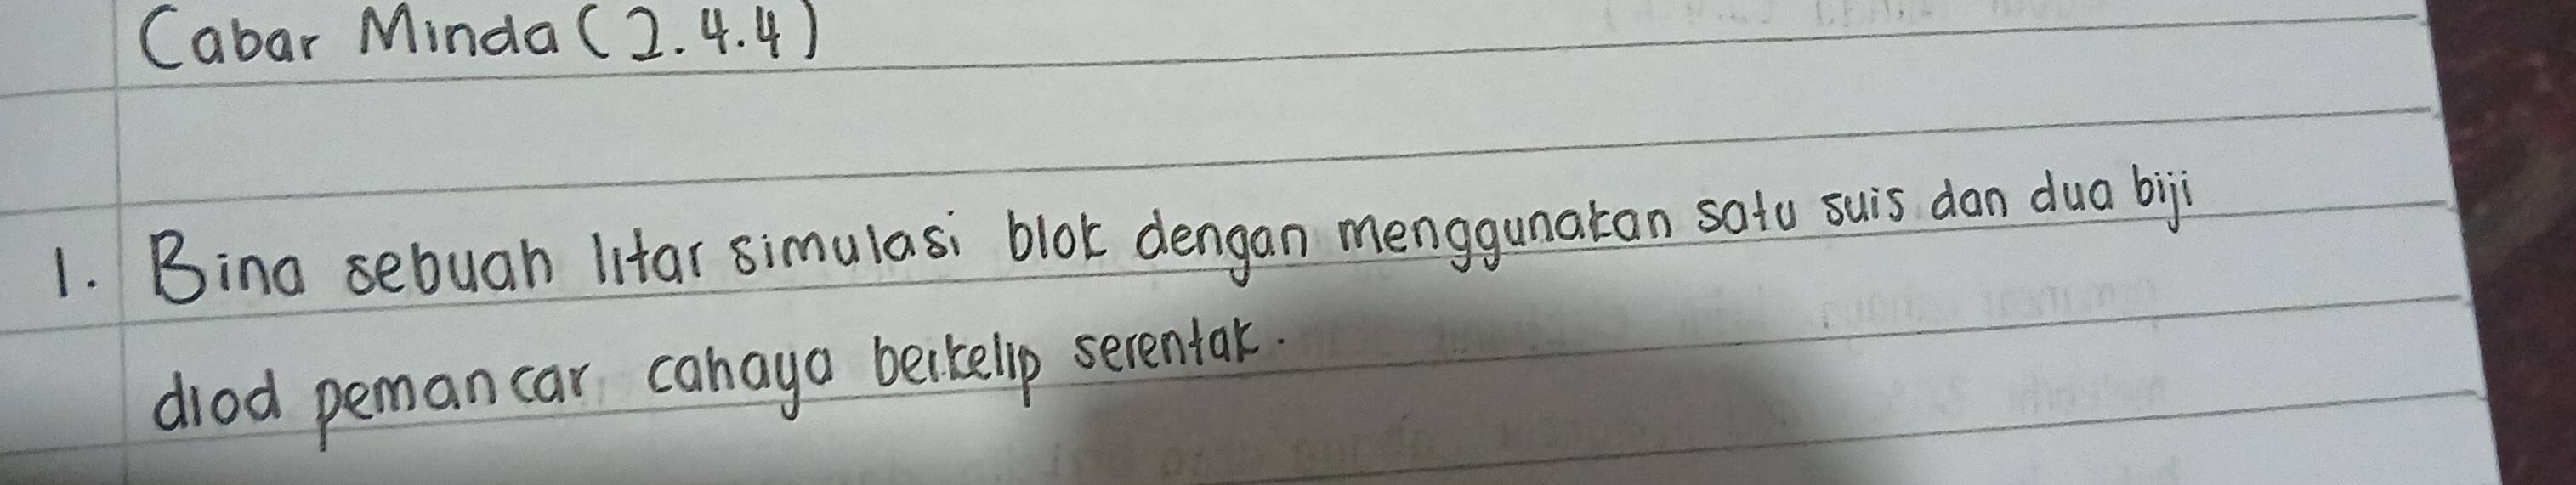 Cabar Minda (2.4.4)
1. Bina sebuah litar simulasi blok dengan menggunakan satu suis dan dua biji
diod pemancar cahaya berkelip serentak.